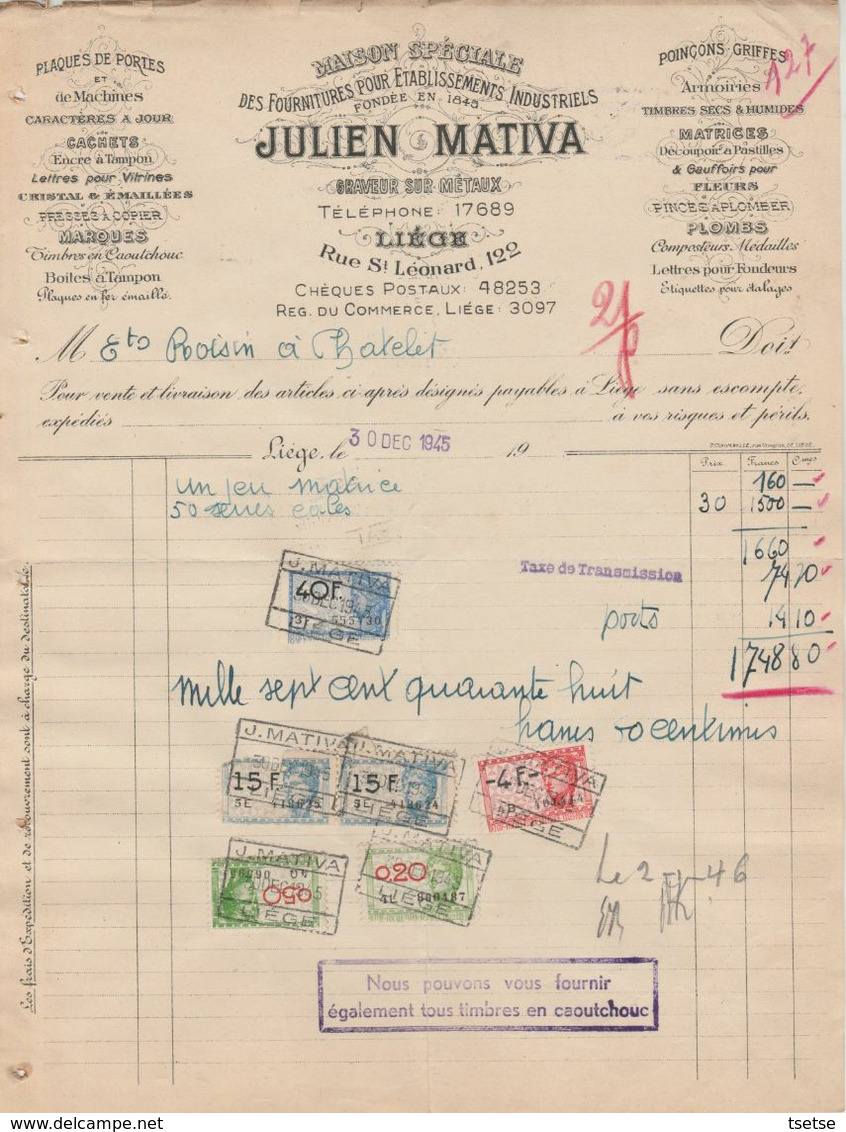 PLAQUES DE PORTES
ET
de Machines
CARACTÈRES A JOUR
CACHETS
Encre à Tampon
Lettres pour Vitrines
CRISTAL & ÉMAILLÉES
PRESSES A COPIER
MARQUES
Timbres en Caoutchouc
Boites à Tampon
Plaques en fer émaillé.
MAISON SPÉCIALE
DES FOURNITURES POUR ETABLISSEMENTS INDUSTRIELS
FONDÉE EN 1845
JULIEN MATIVA
GRAVEUR SUR MÉTAUX
TÉLÉPHONE: 17689
LIÉGE
Rue St Léonard, 122
CHÈQUES POSTAUX: 48253
REG. DU COMMERCE, LIÉGE: 3097
POINÇONS GRIFFES
Armoiries
TIMBRES SECS & HUMIDES
MATRICES
Découpoir à Pastilles
& Gauffoirs pour
FLEURS
PINCES A PLOMBER
PLOMBS
Composteurs, Médailles
Lettres pour Fondeurs
Etiquettes pour étalages
127
M Ets Roisin à Chatelet
Doit
Pour vente et livraison des articles ci-après désignés payables à Liége sans escompte,
expédiés à vos risques et périls.
Liége, le 30 DEC 1945 19
Prix Francs Cmes
un jeu matrice 160 —
50 30 1500 —
1660
Taxe de Transmission 74 70
ports 14 10
1748 80
mille sept cent quarante huit
francs 70 centimes
J. MATIVA
40 F.
30 DEC 1945
LIÉGE
J. MATIVA
15 F.
5E 418625
30 DEC 1945
LIÉGE
J. MATIVA
15 F.
5E 418624
LIÉGE
-4 F-
LIÉGE
J. MATIVA
0,50
30 DEC 1945
LIÉGE
J. MATIVA
0,20
800487
LIÉGE
Nous pouvons vous fournir
également tous timbres en caoutchouc
Les frais d'Expédition et de recouvrement sont à charge du destinataire.
tsetse